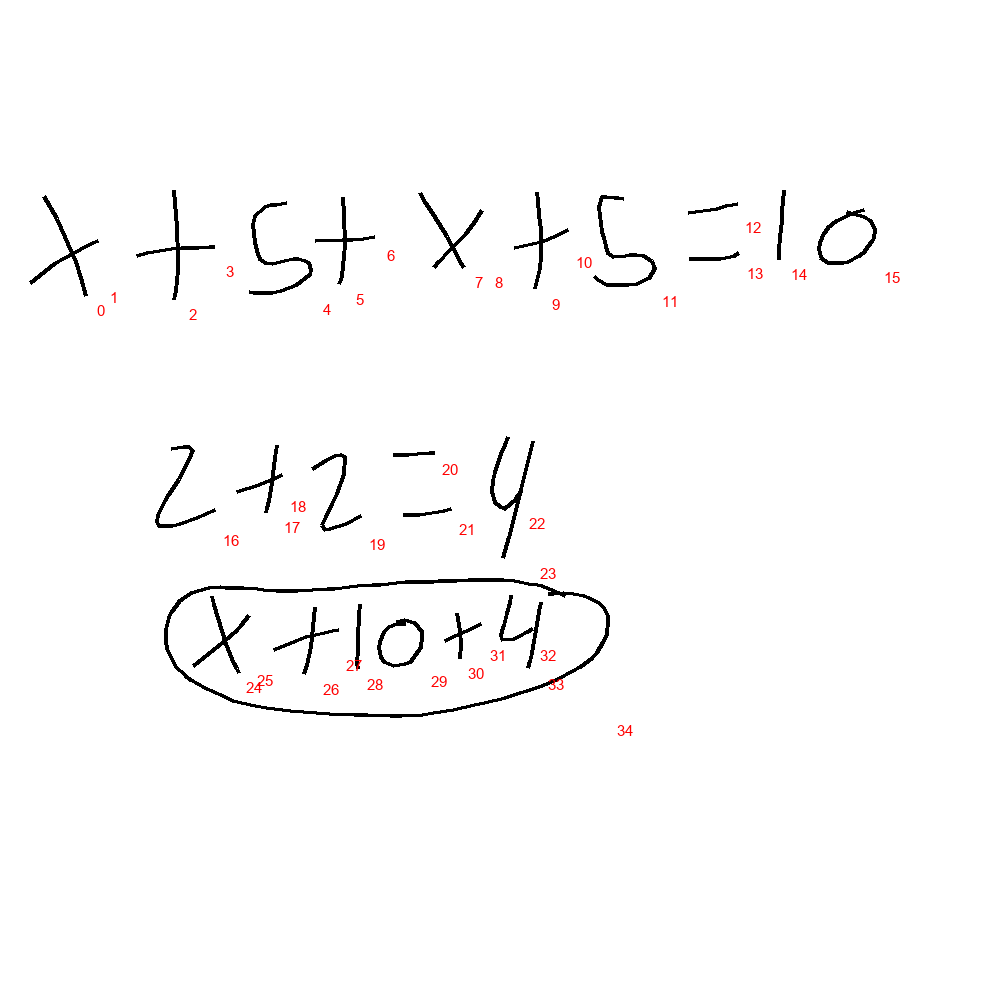 x + 5 + x + 5 = 10
2 + 2 = 4
x + 10 + 4
0 1 2 3 4 5 6 7 8 9 10 11 12 13 14 15
16 17 18 19 20 21 22 23
24 25 26 27 28 29 30 31 32 33 34